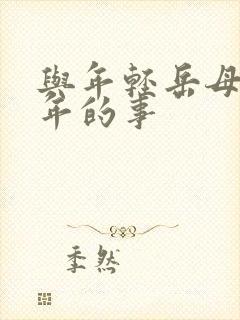 與年輕岳母
年的事
季然